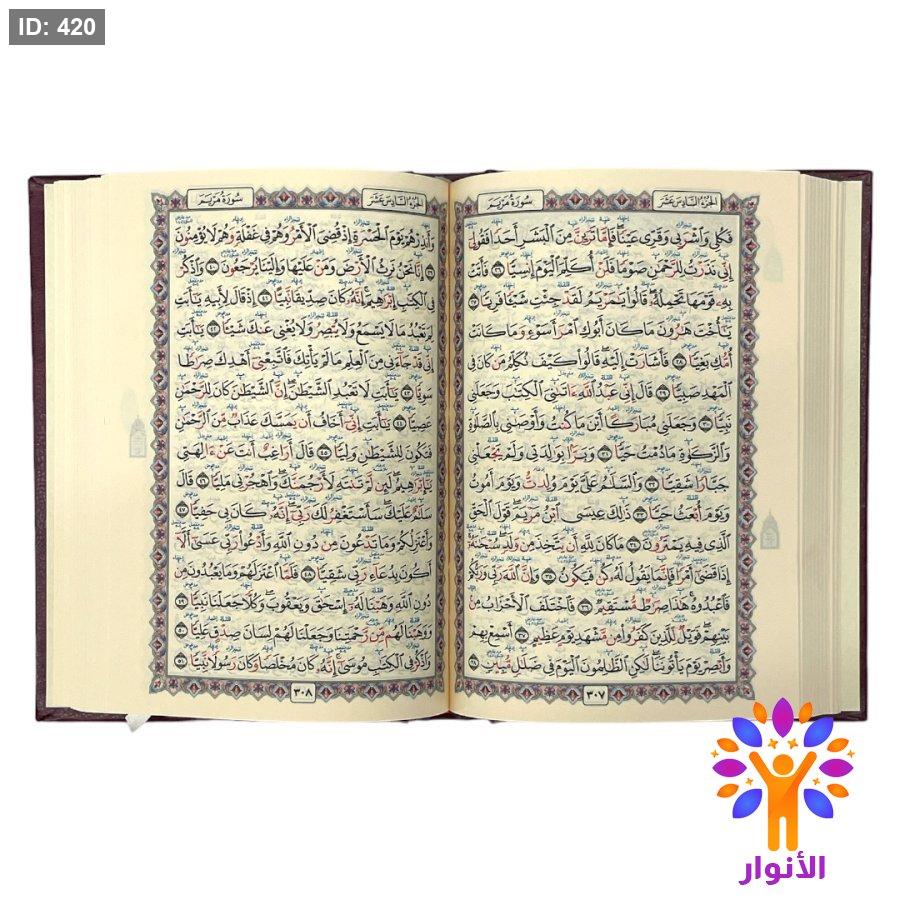 ID: 420
الجزء السادس عشر
سورة مريم
فكلي واشربي وقري عينا فإما ترين من البشر أحدا فقولي
إني نذرت للرحمن صوما فلن أكلم اليوم إنسيا ٢٦ فأتت
به قومها تحمله قالوا يامريم لقد جئت شيئا فريا ٢٧
يا أخت هارون ما كان أبوك امرأ سوء وما كانت
أمك بغيا ٢٨ فأشارت إليه قالوا كيف نكلم من كان في
المهد صبيا ٢٩ قال إني عبد الله آتاني الكتاب وجعلني
نبيا ٣٠ وجعلني مباركا أين ما كنت وأوصاني بالصلاة
والزكاة ما دمت حيا ٣١ وبرا بوالدتي ولم يجعلني
جبارا شقيا ٣٢ والسلام علي يوم ولدت ويوم أموت
ويوم أبعث حيا ٣٣ ذلك عيسى ابن مريم قول الحق
الذي فيه يمترون ٣٤ ما كان لله أن يتخذ من ولد سبحانه
إذا قضى أمرا فإنما يقول له كن فيكون ٣٥ وإن الله ربي وربكم
فاعبدوه هذا صراط مستقيم ٣٦ فاختلف الأحزاب من
بينهم فويل للذين كفروا من مشهد يوم عظيم ٣٧ أسمع بهم
وأبصر يوم يأتوننا لكن الظالمون اليوم في ضلال مبين ٣٨
٣٠٧
الجزء السادس عشر
سورة مريم
وأنذرهم يوم الحسرة إذ قضي الأمر وهم في غفلة وهم لا يؤمنون
٣٩ إنا نحن نرث الأرض ومن عليها وإلينا يرجعون ٤٠ واذكر
في الكتاب إبراهيم إنه كان صديقا نبيا ٤١ إذ قال لأبيه يا أبت
لم تعبد ما لا يسمع ولا يبصر ولا يغني عنك شيئا ٤٢ يا أبت
إني قد جاءني من العلم ما لم يأتك فاتبعني أهدك صراطا
سويا ٤٣ يا أبت لا تعبد الشيطان إن الشيطان كان للرحمن
عصيا ٤٤ يا أبت إني أخاف أن يمسك عذاب من الرحمن
فتكون للشيطان وليا ٤٥ قال أراغب أنت عن آلهتي
يا إبراهيم لئن لم تنته لأرجمنك واهجرني مليا ٤٦ قال
سلام عليك سأستغفر لك ربي إنه كان بي حفيا ٤٧
وأعتزلكم وما تدعون من دون الله وأدعو ربي عسى ألا
أكون بدعاء ربي شقيا ٤٨ فلما اعتزلهم وما يعبدون من
دون الله وهبنا له إسحاق ويعقوب وكلا جعلنا نبيا ٤٩
ووهبنا لهم من رحمتنا وجعلنا لهم لسان صدق عليا ٥٠
واذكر في الكتاب موسى إنه كان مخلصا وكان رسولا نبيا ٥١
٣٠٨
الأنوار